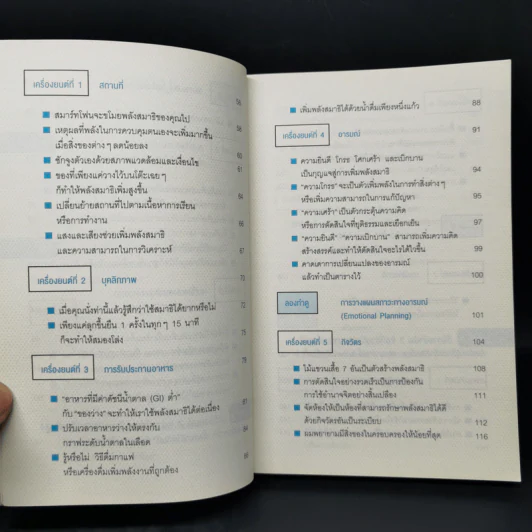 เครื่องยนต์ที่ 1 สถานที่
สมาร์ทโฟนจะขโมยพลังสมาธิของคุณไป
เหตุผลที่พลังในการควบคุมตนเองจะเพิ่มมากขึ้น
เมื่อสิ่งของต่างๆ ลดน้อยลง
ชักจูงตัวเองด้วยสภาพแวดล้อมและเงื่อนไข
ของที่เพียงแค่วางไว้บนโต๊ะเฉยๆ
ก็ทำให้พลังสมาธิเพิ่มสูงขึ้น
เปลี่ยนย้ายสถานที่ไปตามเนื้อหาการเรียน
หรือการทำงาน
แสงและเสียงช่วยเพิ่มพลังสมาธิ
และความสามารถในการวิเคราะห์
เครื่องยนต์ที่ 2 บุคลิกภาพ 73
เมื่อคุณนั่งท่านี้แล้วรู้สึกว่าใช้สมาธิได้ยากหรือไม่
เพียงแค่ลุกขึ้นยืน 1 ครั้งในทุกๆ 15 นาที
ก็จะทำให้สมองโล่ง
เครื่องยนต์ที่ 3 การรับประทานอาหาร
"อาหารที่มีค่าดัชนีน้ำตาล (GI) ต่ำ"
กับ "ของว่าง" จะทำให้เราใช้พลังสมาธิได้ต่อเนื่อง
ปรับเวลาอาหารว่างให้ตรงกับ
กราฟระดับน้ำตาลในเลือด
รู้หรือไม่ วิธีดื่มกาแฟ
หรือเครื่องดื่มเพิ่มพลังงานที่ถูกต้อง
เพิ่มพลังสมาธิได้ด้วยน้ำดื่มเพียงหนึ่งแก้ว 88
เครื่องยนต์ที่ 4 อารมณ์ 91
ความยินดี โกรธ โศกเศร้า และเบิกบาน
เป็นกุญแจสู่การเพิ่มพลังสมาธิ 94
"ความโกรธ" จะเป็นตัวเพิ่มพลังในการทำสิ่งต่างๆ
หรือเพิ่มความสามารถในการแก้ปัญหา 95
"ความเศร้า" เป็นตัวกระตุ้นความคิด
หรือการตัดสินใจที่ยุติธรรมและเยือกเย็น 97
"ความยินดี" "ความเบิกบาน" สามารถเพิ่มความคิด
สร้างสรรค์และทำให้ตัดสินใจอะไรได้ไวขึ้น 99
คาดเดาการเปลี่ยนแปลงของอารมณ์
แล้วทำเป็นตารางไว้ 100
ลองทำดู การวางแผนสภาวะทางอารมณ์
(Emotional Planning) 101
เครื่องยนต์ที่ 5 กิจวัตร 104
ไม้แขวนเสื้อ 7 อันเป็นตัวสร้างพลังสมาธิ 108
การตัดสินใจอย่างรวดเร็วเป็นการป้องกัน
การใช้อำนาจจิตอย่างสิ้นเปลือง 111
จัดห้องให้เป็นห้องที่สามารถรักษาพลังสมาธิได้ดี
ด้วยกิจวัตรอันเป็นระเบียบ 112
ผมพยายามมีสิ่งของในครอบครองให้น้อยที่สุด 116